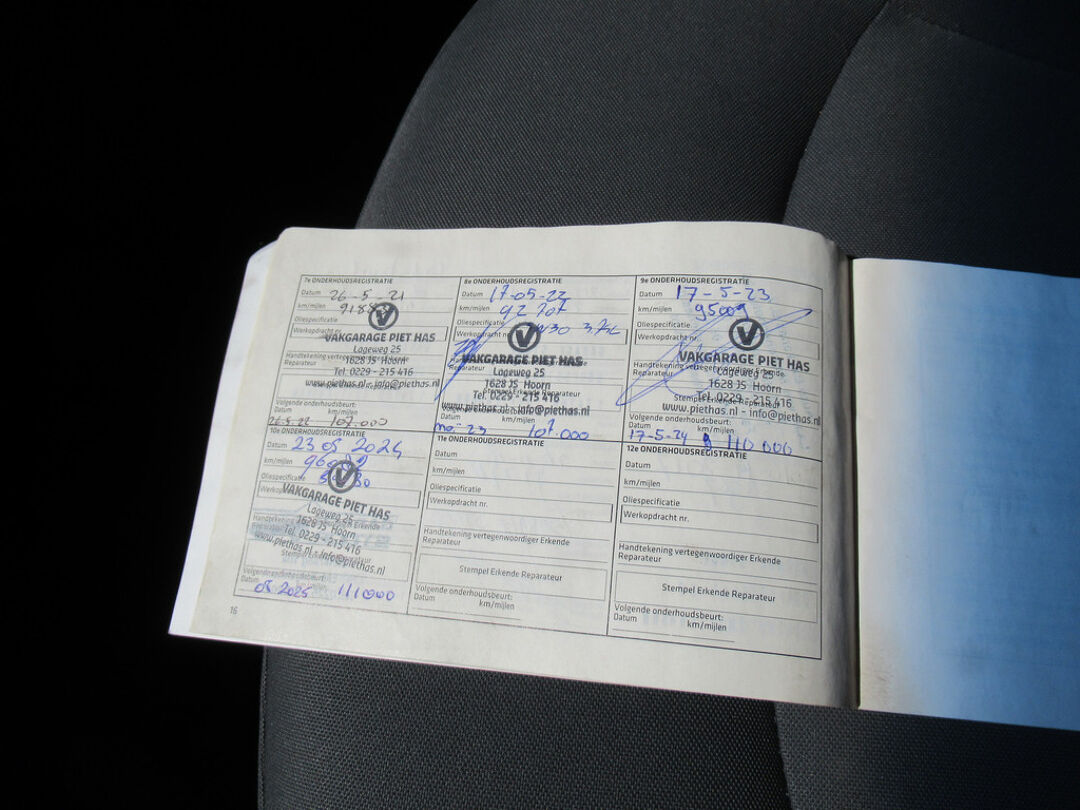 7e ONDERHOUDSREGISTRATIE
Datum 26-5-21
km/mijlen
Oliespecificatie
Werkopdracht nr.
VAKGARAGE PIET HAS
Lageweg 25
Handtekening vertegenwoordiger Erkende
Reparateur
1628 JS Hoorn
Tel. 0229 - 215 416
www.piethas.nl - info@piethas.nl
Volgende onderhoudsbeurt:
Datum km/mijlen
26-5-22 107.000
8e ONDERHOUDSREGISTRATIE
Datum 17-05-22
km/mijlen 92707
Oliespecificatie
Werkopdracht nr.
VAKGARAGE PIET HAS
Lageweg 25
Handtekening vertegenwoordiger Erkende
Reparateur
1628 JS Hoorn
Stempel Erkende Reparateur
Tel. 0229 - 215 416
www.piethas.nl - info@piethas.nl
Volgende onderhoudsbeurt:
Datum km/mijlen
107.000
9e ONDERHOUDSREGISTRATIE
Datum 17-5-23
km/mijlen 95009
Oliespecificatie
Werkopdracht nr.
VAKGARAGE PIET HAS
Handtekening vertegenwoordiger Erkende
Reparateur
Lageweg 25
1628 JS Hoorn
Stempel Erkende Reparateur
Tel. 0229 - 215 416
www.piethas.nl - info@piethas.nl
Volgende onderhoudsbeurt:
Datum km/mijlen
17-5-24 110 000
10e ONDERHOUDSREGISTRATIE
Datum 23 05 2024
km/mijlen
Oliespecificatie
VAKGARAGE PIET HAS
Lageweg 25
Handtekening
Erkende
1628 JS Hoorn
Tel. 0229 - 215 416
www.piethas.nl - info@piethas.nl
Volgende onderhoudsbeurt:
Datum km/mijlen
05 2025 111000
11e ONDERHOUDSREGISTRATIE
Datum
km/mijlen
Oliespecificatie
Werkopdracht nr.
Handtekening vertegenwoordiger Erkende
Reparateur
Stempel Erkende Reparateur
Volgende onderhoudsbeurt:
Datum km/mijlen
12e ONDERHOUDSREGISTRATIE
Datum
km/mijlen
Oliespecificatie
Werkopdracht nr.
Handtekening vertegenwoordiger Erkende
Reparateur
Stempel Erkende Reparateur
Volgende onderhoudsbeurt:
Datum km/mijlen
16